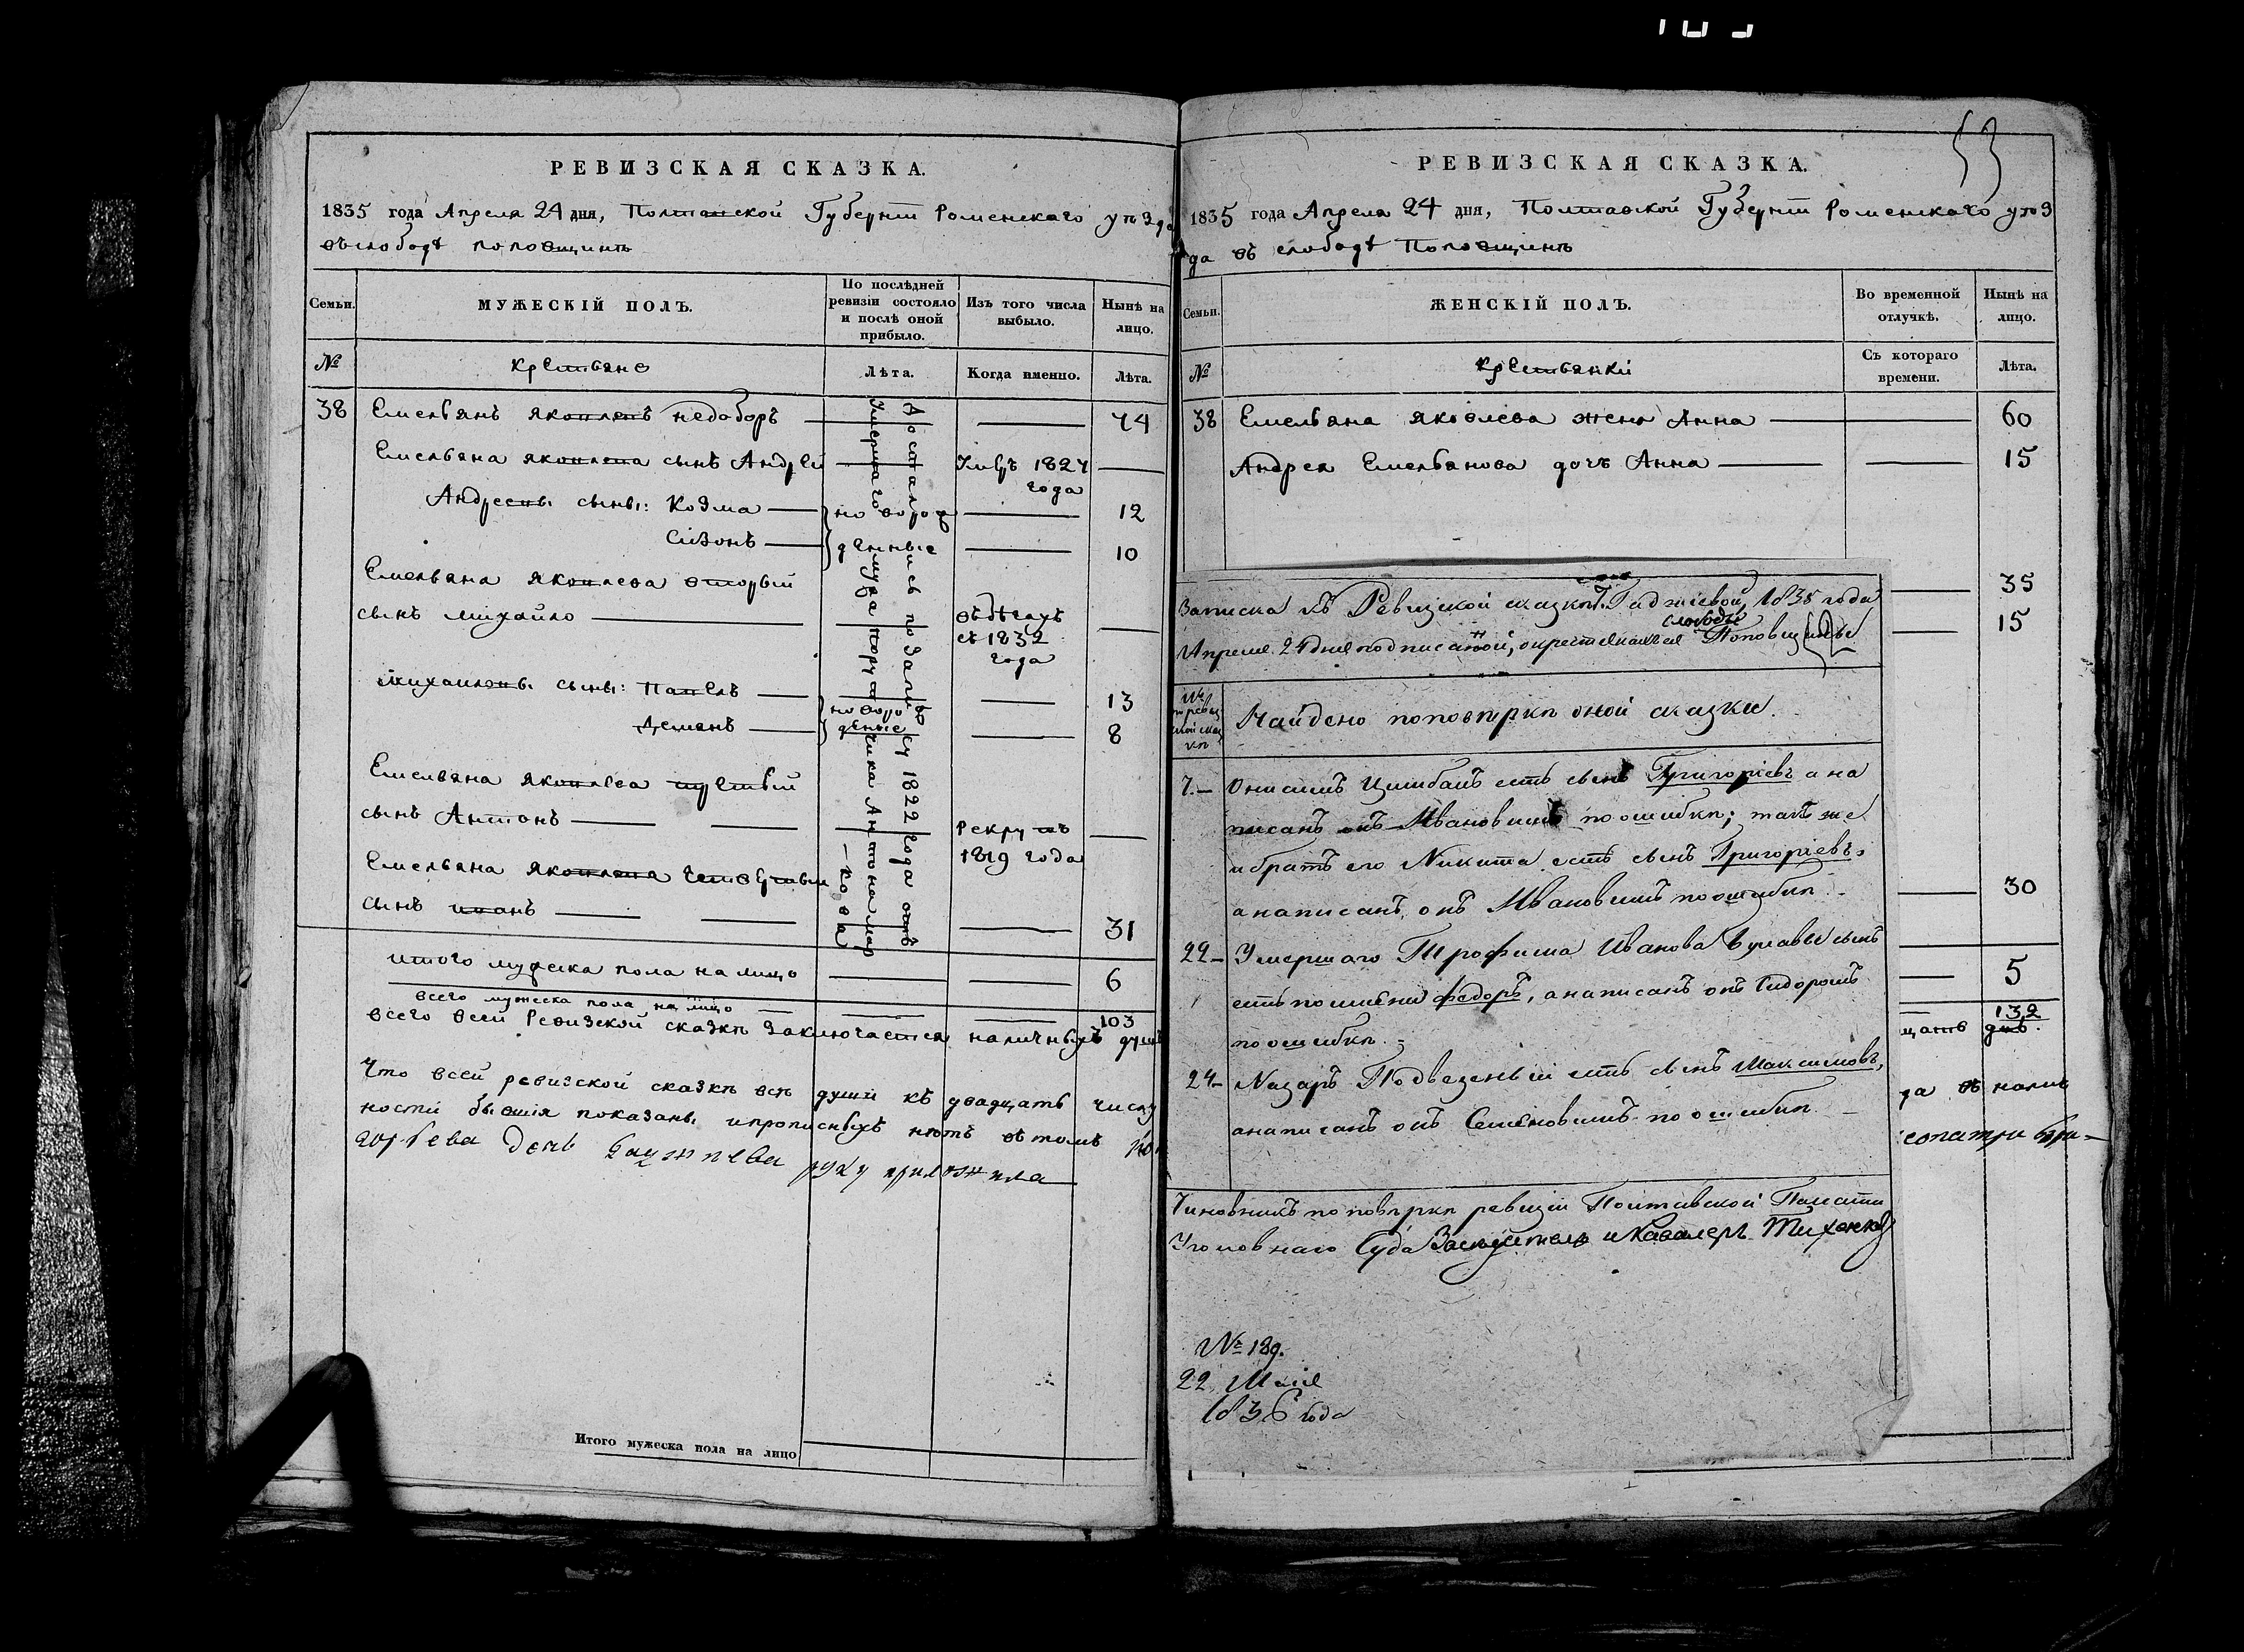 РЕВИЗСКАЯ СКАЗКА.
1835 года Апреля 24 дня, Полтавской Губернiи Роменскаго уѣзда
въ слободѣ поповщинѣ
Семьи.
МУЖЕСКІЙ ПОЛЪ.
По послѣдней ревизіи состояло и послѣ оной прибыло.
Изъ того числа выбыло.
Нынѣ на лицо.
№
крестьяне
Лѣта.
Когда именно.
Лѣта.
38 Емельянъ яковлевъ недоборъ 74
Емельяна яковлева сынъ Андрей 1827
года
Андреевы сыны: Козма 12
новорож
Сизонъ 10
денные
Емельяна яковлева вторый
сынъ михайло въ бѣгахъ
съ 1832
года
михаиловы сыны: павелъ 13
новоро
Демянъ 8
деные
Емельяна яковлева третьий
сынъ Антонъ рекрутъ
1819 года
Емельяна яковлева четвертый
сынъ иванъ 31
Досталось по разделу 1822 года отъ
Умершаго Маіора Антона мар
кова
итого мужеска пола на лицо 6
всего мужеска пола на лицо 103
всего всей Ревизской сказкѣ заключается наличныхъ душъ
Что всей ревизской сказкѣ всѣ души къ двадцать числу
ности бывшія показаны и прописныхъ нѣтъ въ томъ
дочь руку приложила
Итого мужеска пола на лицо
53
РЕВИЗСКАЯ СКАЗКА.
1835 года Апреля 24 дня, Полтавской Губернiи Роменскаго уѣз
да въ слободѣ Поповщинѣ
Семьи.
ЖЕНСКІЙ ПОЛЪ.
Во временной отлучкѣ.
Нынѣ на лицо.
№
крестьянкі
Съ котораго времени.
Лѣта.
38 Емельяна яковлева жена Анна 60
Андрея Емельянова дочь Анна 15
35
15
30
5
132
цать душ.
да въ налич
Записка къ Ревизской сказкѣ Гаджіевой, 1835 года
слободы
Апреля 24 дня подписанной, о крестьянахъ Поповщины
Найдено по повѣркѣ оной сказки.
7. Онисимъ Цимбалъ есть сынъ Григоріевъ а на
писанъ онъ Ивановымъ по ошибкѣ; такъ же
и братъ его Никита есть сынъ Григоріевъ,
а написанъ онъ Ивановымъ по ошибкѣ.
22 Умершаго Трофима Иванова Булавы сынъ
есть по имени Федоръ, а написанъ онъ Сидоромъ
по ошибкѣ.
24 Назаръ Подвезеный есть сынъ Максимовъ,
а написанъ онъ Семеновымъ по ошибкѣ.
Чиновникъ по повѣркѣ ревизіи Полтавской Палаты
Уголовнаго Суда Заседатель и Кавалеръ Тихонов
№ 189.
22 Маія
1836 года